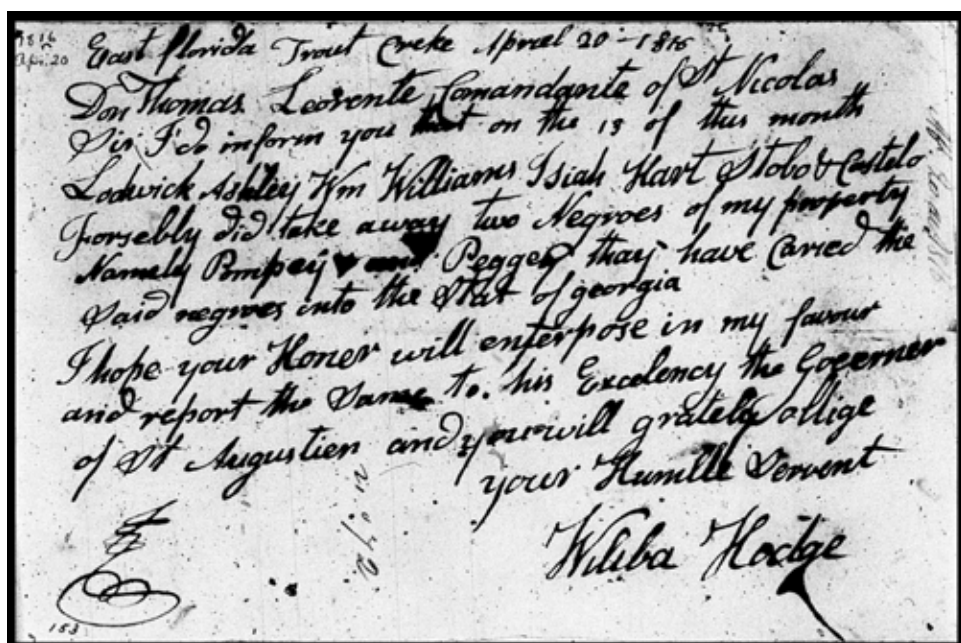 1816
Apr. 20
East florida Trout Creke Apreel 20 - 1816
Don Thomas Leorente Comandante of St Nicolas
Sir I do inform you that on the 13 of this month
Lodwick Ashley Wm Williams Isiah Hart Stobo & Costelo
Forsebly did take away two Negroes of my property
Namely Pompey and Peggey thay have Caried the
Said negroes into the Stat of georgia
I hope your Honer will enterpose in my favour
and report the Same to his Excelency the Governer
of St Augustien and you will grately oblige
your Humble Servent
Wiliba Hodge
153